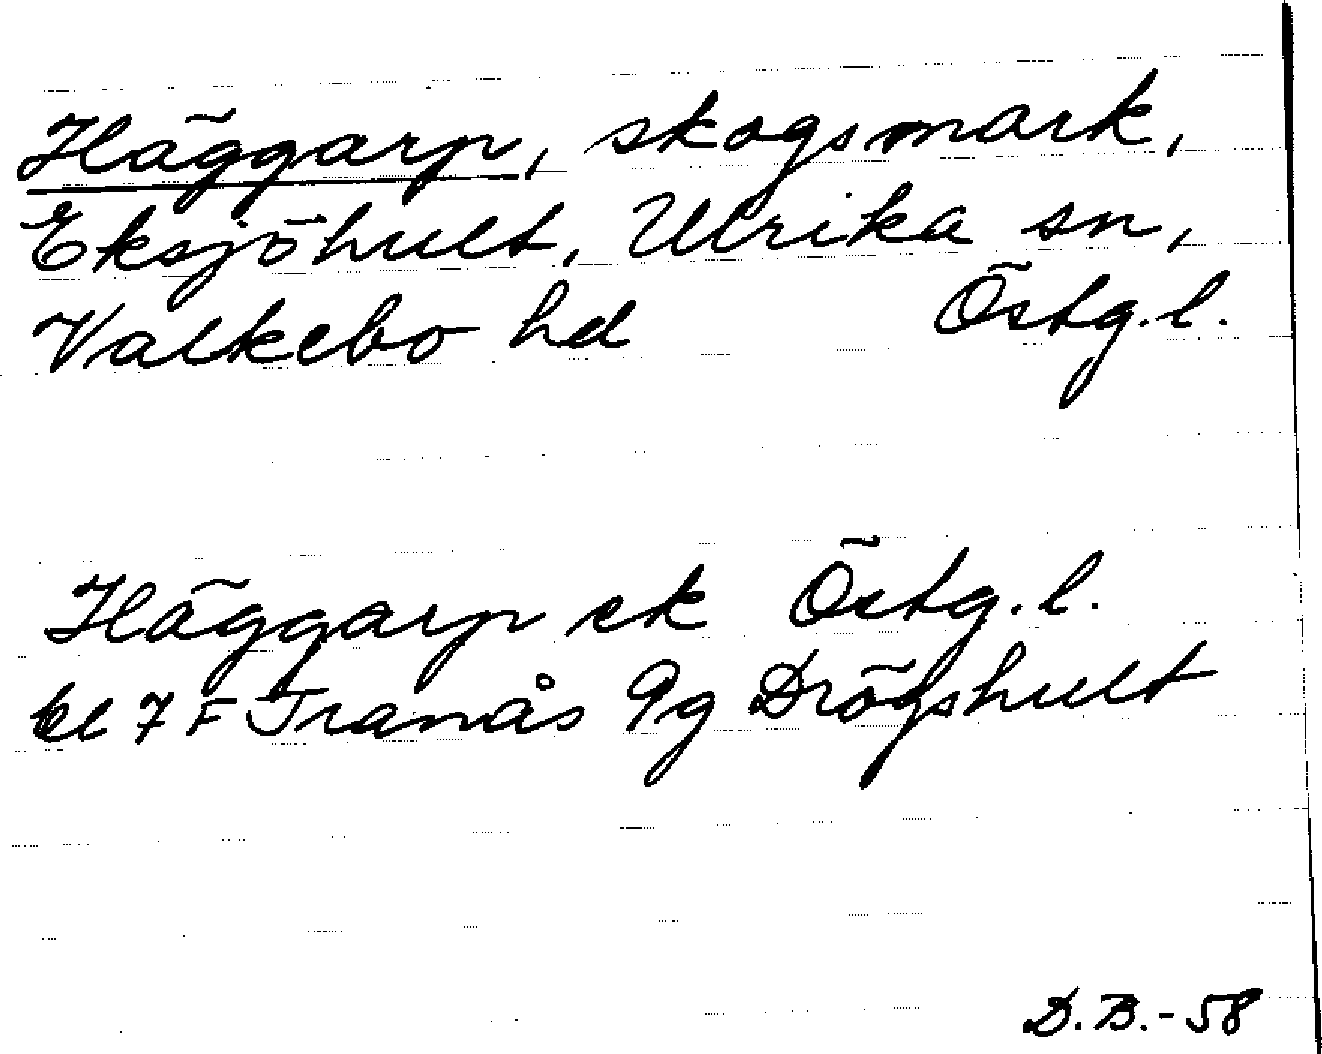 Häggarp, skogsmark,
Eksjöhult, Ulrika sn,
Valkebo hd Östg.l.
Häggarp ek Östg.l.
bl 7 F Tranås 9g Drögshult
D.B.-58